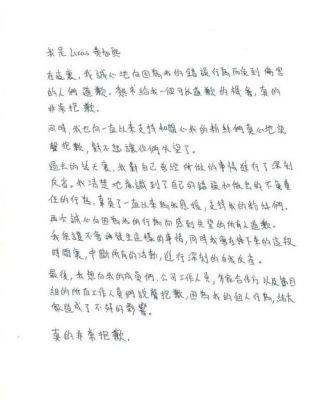 我是 Lucas 黃旭熙
在這裏，我誠心地向因為我的錯誤行為而受到傷害
的人們道歉。想求給我一個可以道歉的機會，真的
非常抱歉.
同時，我也向一直以來支持和關心我的粉絲們真心地說
聲抱歉，對不起讓你們失望了.
過去的幾天裏，我對自己曾經所做的事情進行了深刻
反省。我清楚地意識到了自己的錯誤和做出的不負責
任的行為，辜負了一直以來為我應援，支持我的粉絲們.
再次誠心向因為我的行為而感到失望的所有人道歉.
我承諾不會再發生這樣的事情，同時我會在接下來的這段
時間裏，中斷所有的活動，進行深刻的自我反省.
最後，我想向我的成員們，公司工作人員，多家合作方以及節目
組的所有工作人員們說聲抱歉，因為我的個人行為，給大
家造成了不好的影響.
真的非常抱歉.